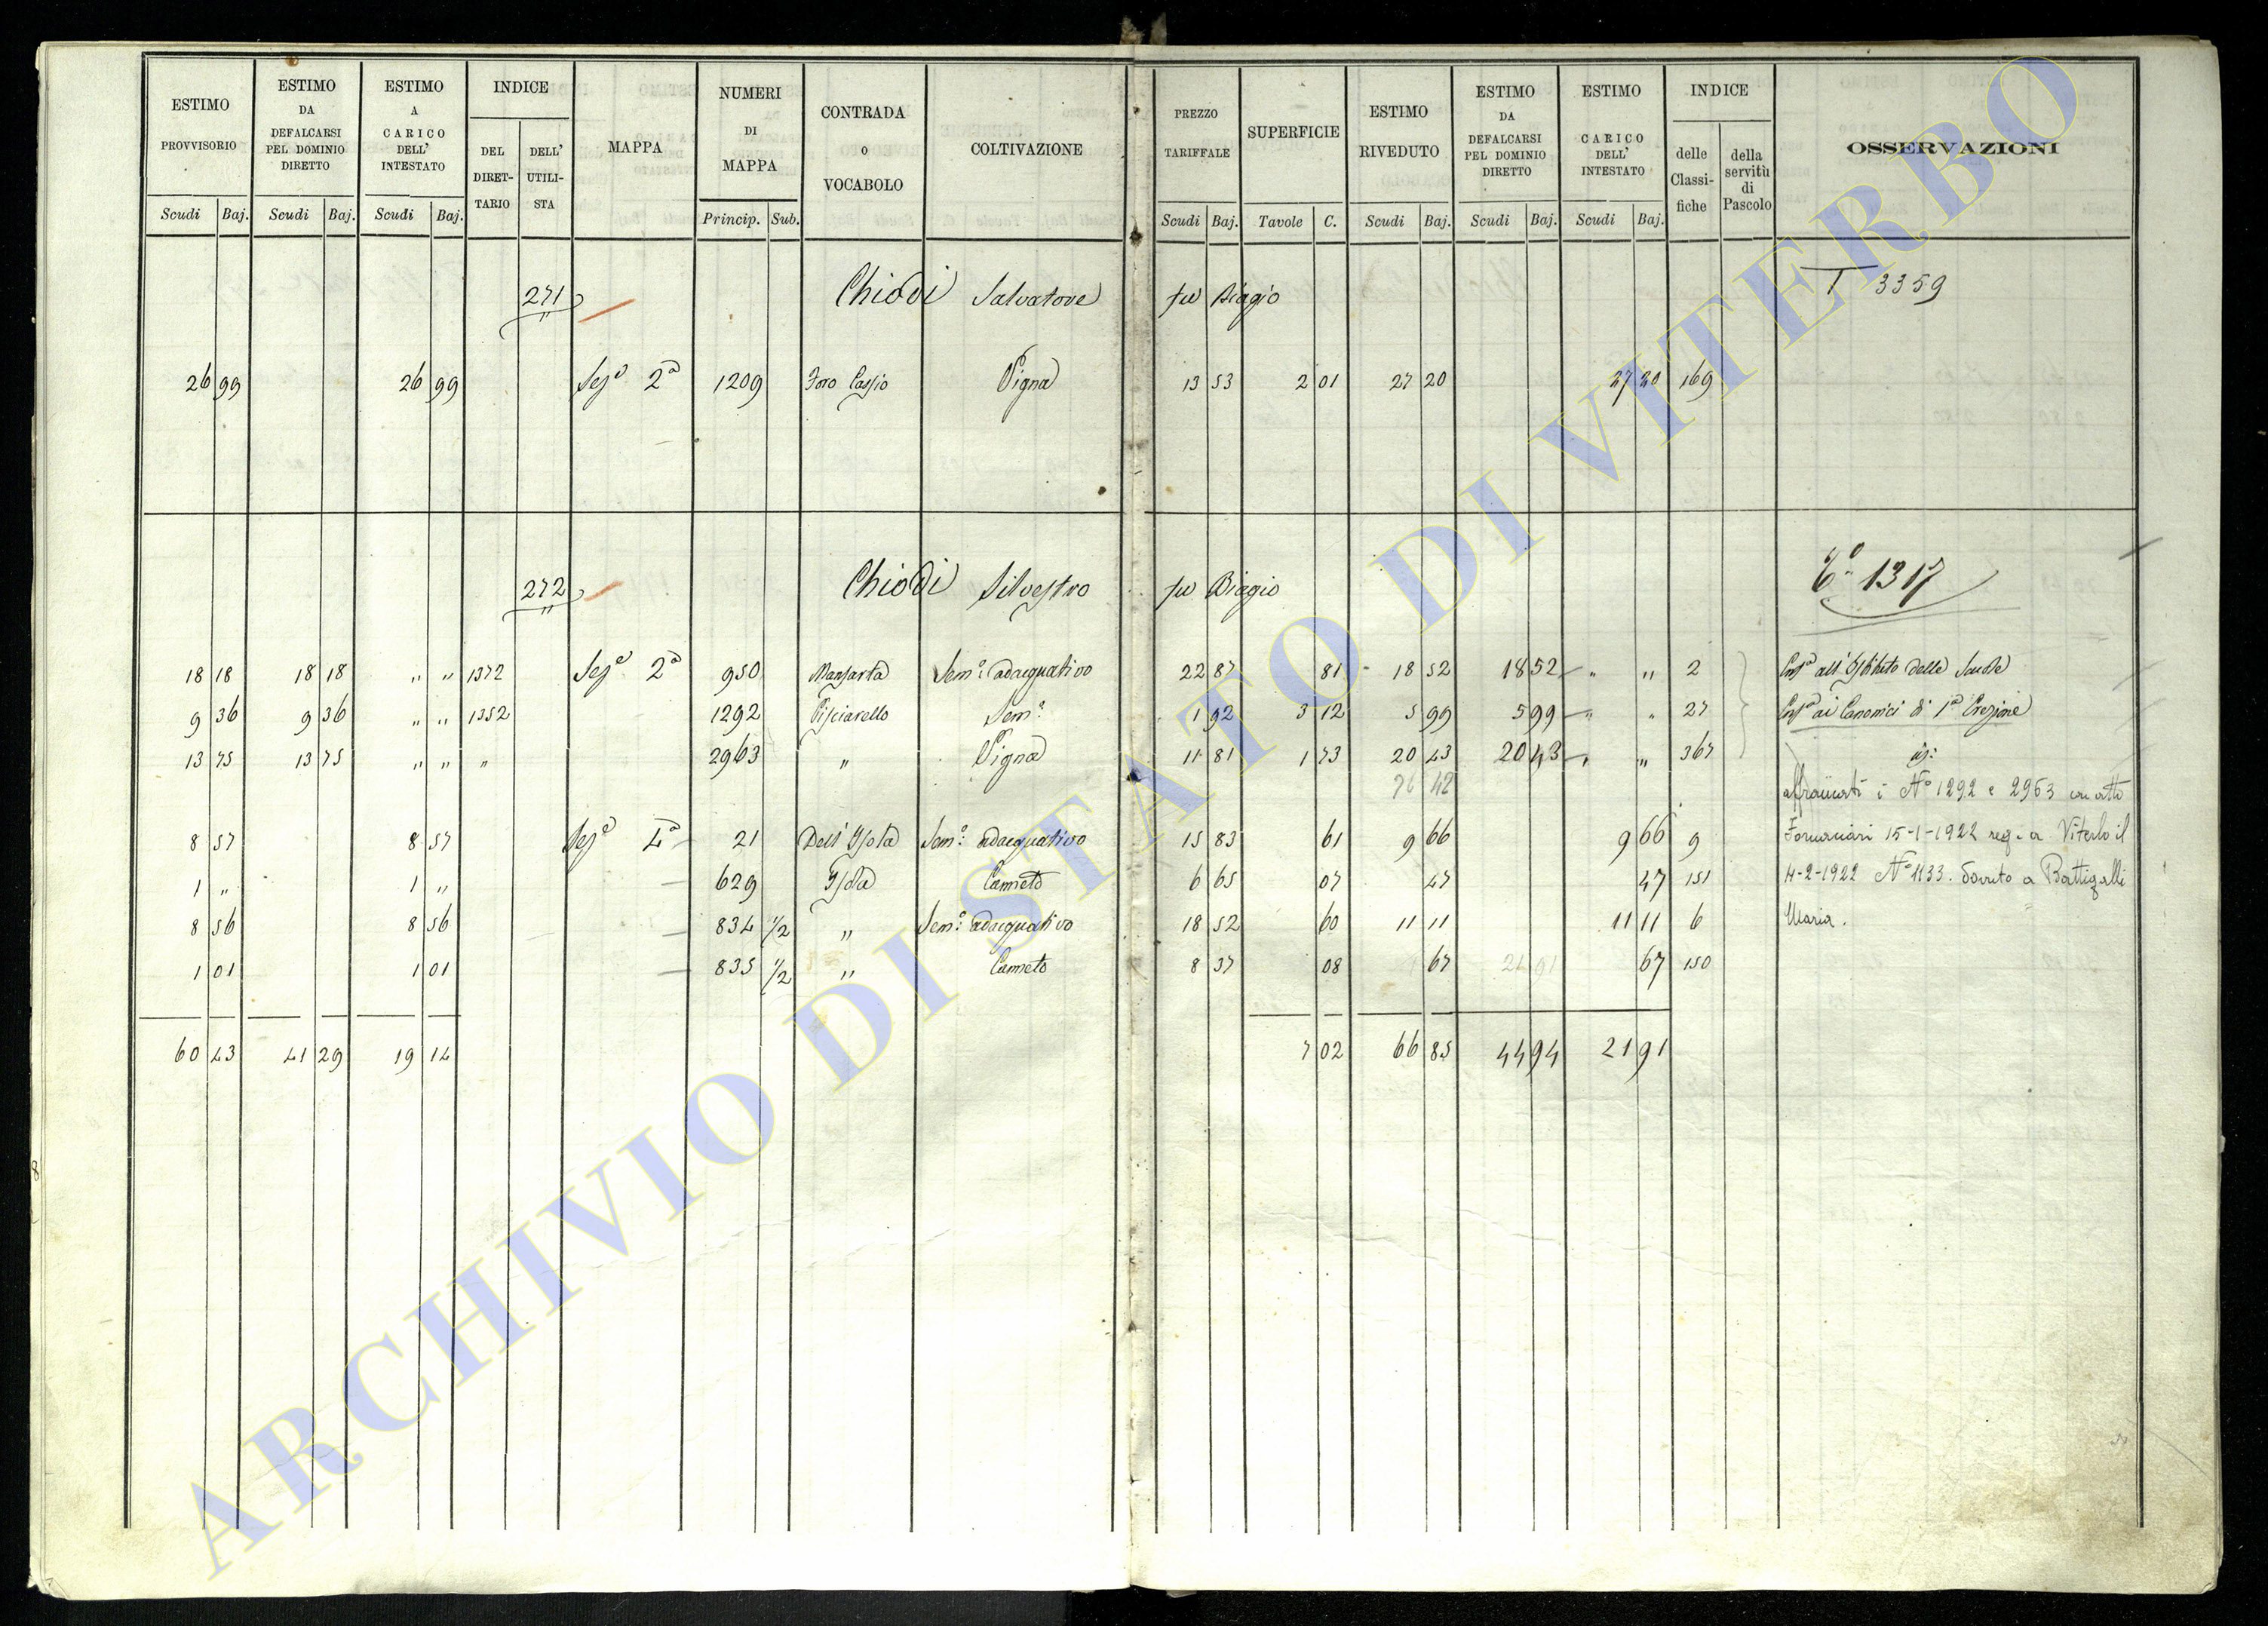 ESTIMO PROVVISORIO Scudi Baj. ESTIMO DA DEFALCARSI PEL DOMINIO DIRETTO Scudi Baj. ESTIMO A CARICO DELL' INTESTATO Scudi Baj. INDICE DEL DIRET- TARIO DELL' UTILI- STA MAPPA NUMERI DI MAPPA Princip. Sub. CONTRADA O VOCABOLO COLTIVAZIONE PREZZO TARIFFALE Scudi Baj. SUPERFICIE Tavole C. ESTIMO RIVEDUTO Scudi Baj. ESTIMO DA DEFALCARSI PEL DOMINIO DIRETTO Scudi Baj. ESTIMO A CARICO DELL' INTESTATO Scudi Baj. INDICE delle Classi- fiche della servitù di Pascolo OSSERVAZIONI
271 Chiodi Salvatore fu Biagio T 3359
26 99 26 99 Seze 2a 1209 Foro Cassio Vigna 13 53 2 01 27 20 27 20 169
272 Chiodi Silvestro fu Biagio 1317
18 18 18 18 " " 1372 Seze 2a 950 Sem.o adacquativo 22 87 81 18 52 18 52 " " 2 all' Istituto delle Scuole
9 36 9 36 " " 1352 1292 Pisciarello Sem.o 1 92 3 12 5 99 5 99 " " 27 ai Canonici di 1a Erezione
13 75 13 75 " " " 2963 " Vigna 11 81 1 73 20 43 20 43 " " 367
26 42 affrancati i No 1292 e 2963 con atto
8 57 8 57 Seze 4a 21 Dell' Isola Sem.o adacquativo 15 83 61 9 66 9 66 9 15-1-1922 reg. a Viterbo il
1 " 1 " 629 Isola Canneto 6 65 07 47 47 151 4-2-1922 No 1133. dovuto a Battigalli
8 56 8 56 834 1/2 " Sem.o adacquativo 18 52 60 11 11 11 11 6 Maria.
1 01 1 01 835 1/2 " Canneto 8 37 08 67 21 91 67 150
60 43 41 29 19 14 7 02 66 85 44 94 21 91
ARCHIVIO DI STATO DI VITERBO